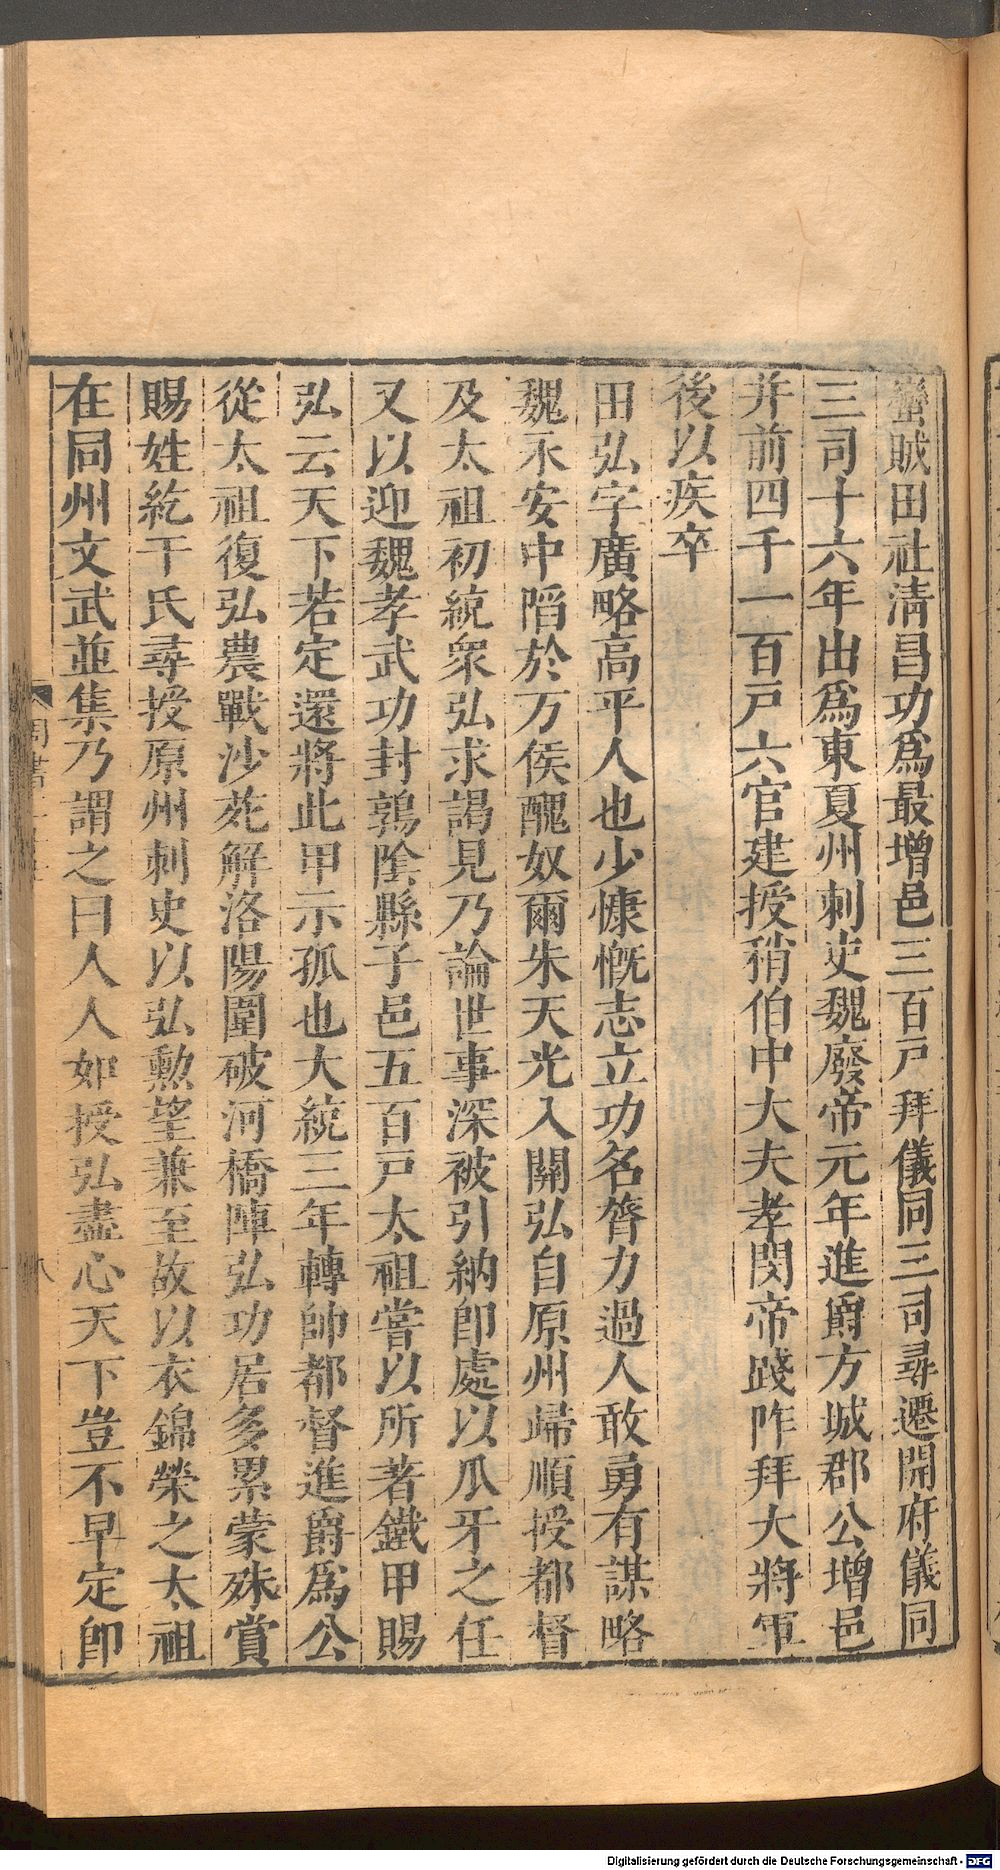 蠻賊田社清昌功爲最增邑三百戸拜儀同三司尋遷開府儀同
三司十六年出爲東夏州刺史魏廢帝元年進爵方城郡公增邑
并前四千一百戸六官建授稍伯中大夫孝閔帝踐阼拜大將軍
後以疾卒
田弘字廣略高平人也少慷慨志立功名膂力過人敢勇有謀略
魏永安中陷於万俟醜奴爾朱天光入關弘自原州歸順授都督
及太祖初統衆弘求謁見乃論世事深被引納卽處以爪牙之任
又以迎魏孝武功封鶉陰縣子邑五百戸太祖嘗以所著鐵甲賜
弘云天下若定還將此甲示孤也大統三年轉帥都督進爵爲公
從太祖復弘農戰沙苑解洛陽圍破河橋陣弘功居多累蒙殊賞
賜姓紇干氏尋授原州刺史以弘勲望兼至故以衣錦榮之太祖
在同州文武並集乃謂之曰人人如授弘盡心天下豈不早定卽
八
Digitalisierung gefördert durch die Deutsche Forschungsgemeinschaft - DFG